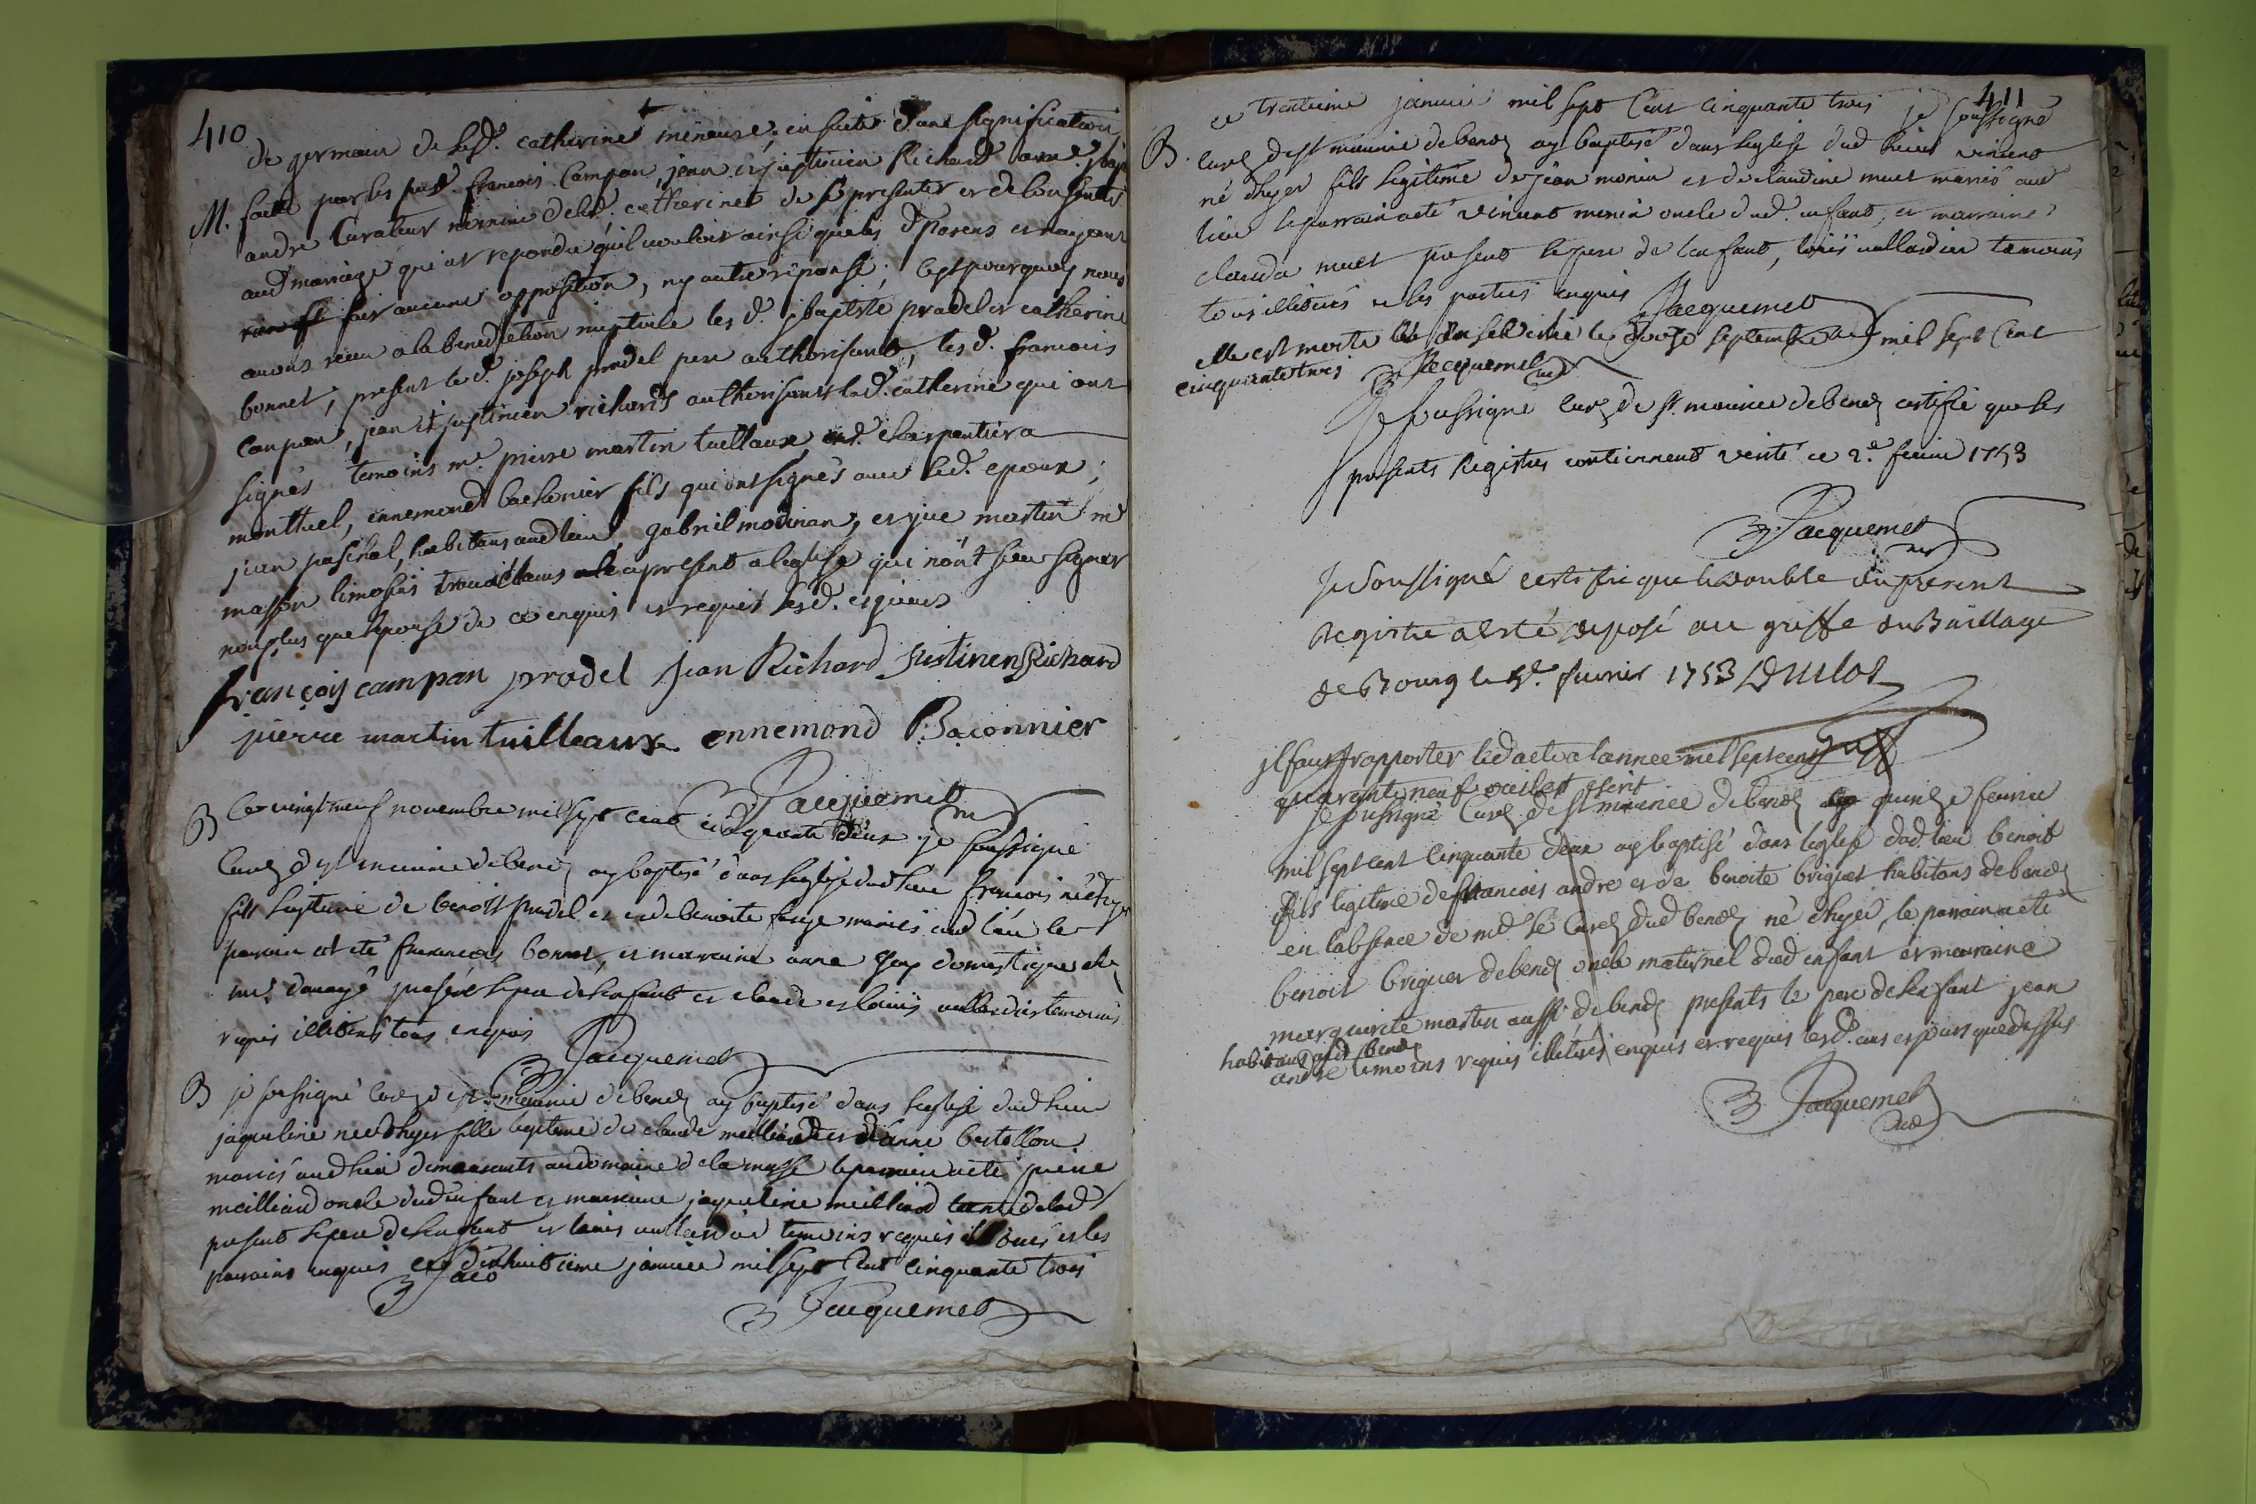 410
de germain de lad. catherine mineure, en suite d'une signification
M. faitte par les susd. francois Campan, jean et justinien Richard
andre Curateur nommé de lad. catherine de se presenter et de consentir
aud mariage qui at repondu qu'il vouloit ainsi que les d. parens et n'ayant
fait aucune opposition, ny autre réponse; c'est pourquoy nous
avons receu a la benediction nuptiale les d. jbaptiste pradel et catherine
bonnet, present led. joseph pradel pere authorisant, les d. francois
Campan, jean et justinien richards authorisants lad. catherine qui ont
signés temoins me. pierre martin tuillaux charpentier a
montluel, ennemond baconnier fils qui ont signés avec led. epoux;
jean paschal, habitans aud lieu, gabriel modinan, et martin md
masson limosin travaillans a present a l'eglise qui n'ont sceu signer
non plus que l'epouse de ce enquis et requis les d. et jour
François campan pradel jean Richard Justinen Richard
pierre martin tuilleaux ennemond Baconnier
Jacquemet
B Ce vingt neuf novembre mil sept cent cinquante deux je soussigné
Curé de st maurice de benoz ay baptisé dans l'eglise dud lieu francois né d'hyer
fils legitime de benoist pradel et de benoite feuge mariés aud lieu le
parrain at eté francois bonnet, et marraine anne domestique de
mr. present le pere de l'enfant et claude et louis temoins
requis illiterés tous enquis
Jacquemet
B je soussigné Curé de st. maurice de benoz ay baptisé dans l'eglise dud lieu
jaqueline née d'hyer fille legitime de claude meilliand et d'anne bertollon
mariés aud lieu demeurants au domaine de la le parrain a eté pierre
meilliand oncle dud enfant et marraine jaqueline meilliand tante de lad
present le pere de l'enfant et louis temoins requis et les
parrains enquis ce dixhuitieme janvier mil sept Cent cinquante trois
Jaco
Jacquemet
411
ce trentieme janvier mil sept Cent cinquante trois je soussigné
B. Curé de st maurice de benoz ay baptisé dans l'eglise dud lieu vincent
né d'hyer fils legitime de jean monin et de claudine muet mariés aud
lieu le parrain a eté vincent monin oncle dud. enfant, et marraine
clauda muet present le pere de l'enfant, louis temoins
tous illiterés et les parties enquis Jacquemet
elle est morte le septembre mil sept Cent
cinquante trois Jacquemet
Je soussigné Curé de st. maurice de benoz certifie que les
presents Registres contiennent verité ce 2.e fevrier 1753
Jacquemet
Je Soussigné certifie que le double du present
Registre a esté deposé au greffe du Bailliage
de Bourg le 5e. fevrier 1753 Duclos
il faut rapporter led acte a l'année mil sept cent
quarante neuf ou il est escrit
je soussigné Curé de st maurice de benoz quinze fevrier
mil sept cent Cinquante deux ay baptisé dans l'eglise dud. lieu benoit
fils legitime de francois andre et de benoite briguet habitans de benoz
en l'absence de mr. le Curé dud benoz né d'hyer, le parrain a eté
benoit briguet de benoz oncle maternel dud enfant et marraine
marguerite martin aussi de benoz presents le pere de l'enfant jean
habitans aud benoz
andré temoins requis illiterés enquis et requis les d. ans et jours que dessus
Jacquemet